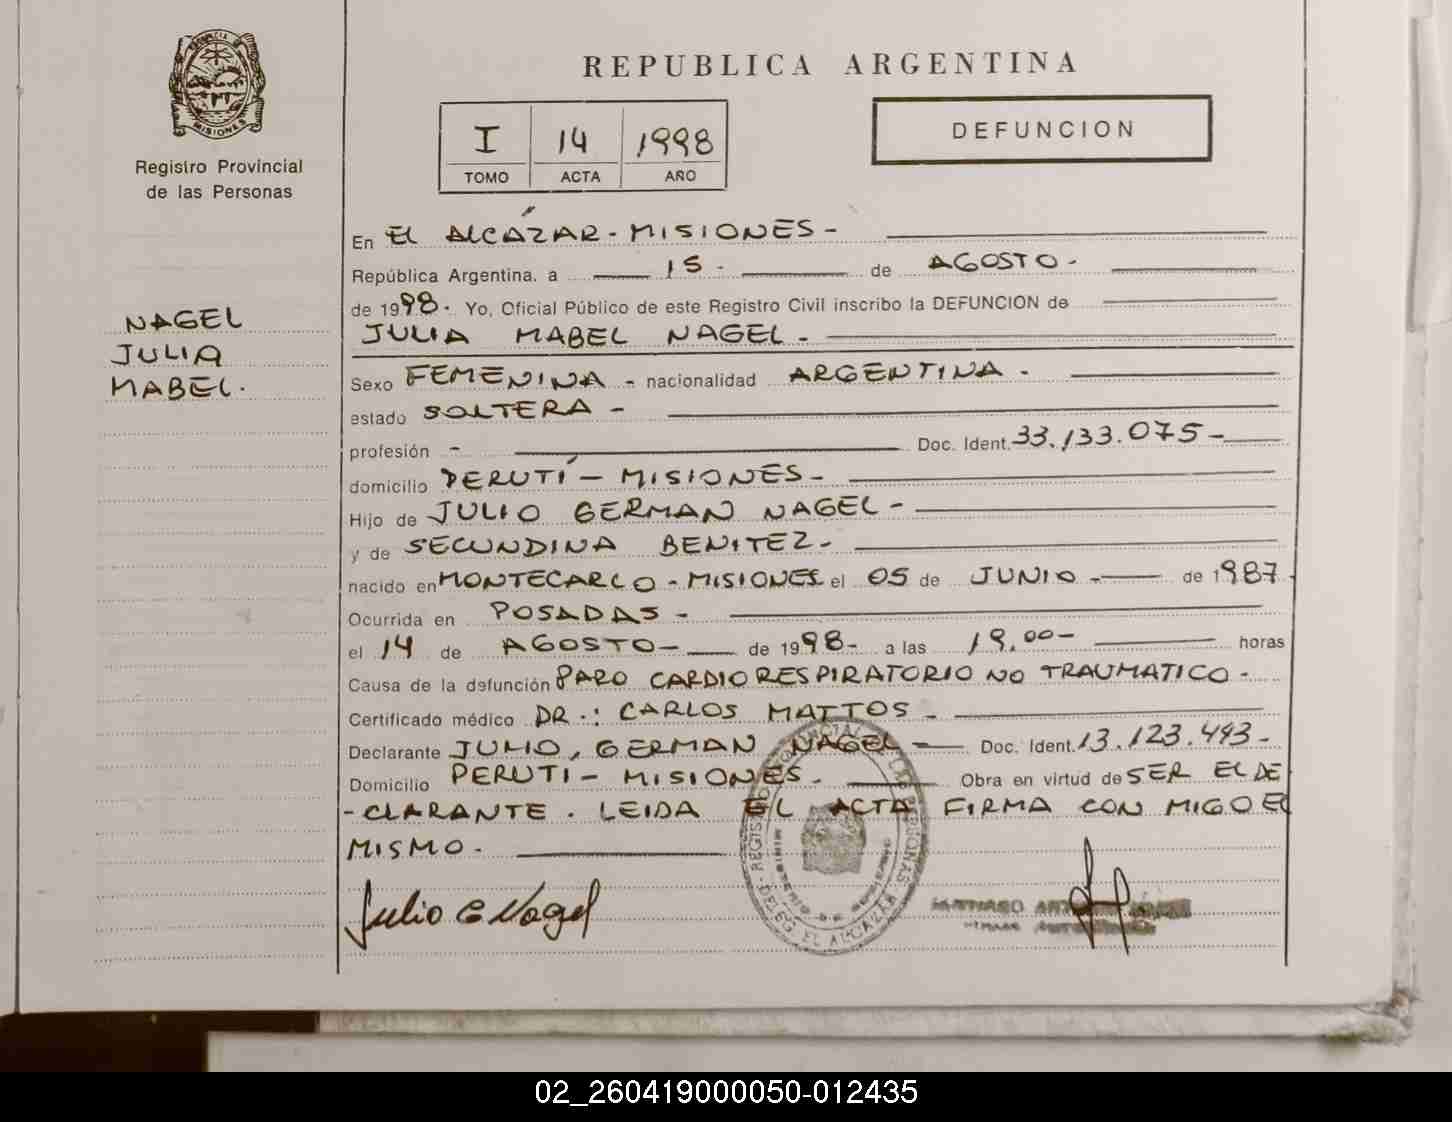 PROVINCIA DE
MISIONES
Registro Provincial
de las Personas
NAGEL
JULIA
MABEL.
REPUBLICA ARGENTINA
I 14 1998
TOMO ACTA AÑO
DEFUNCION
En EL ALCÁZAR - MISIONES -
República Argentina. a 15 - de AGOSTO -
de 1998. Yo, Oficial Público de este Registro Civil inscribo la DEFUNCION de
JULIA MABEL NAGEL -
Sexo FEMENINA - nacionalidad ARGENTINA -
estado SOLTERA -
profesión - Doc. Ident. 33.133.075 -
domicilio PERUTÍ - MISIONES -
Hijo de JULIO GERMAN NAGEL -
y de SECUNDINA BENITEZ -
nacido en MONTECARLO - MISIONES el 05 de JUNIO - de 1987.
Ocurrida en POSADAS -
el 14 de AGOSTO - de 1998 - a las 19,00 - horas
Causa de la defunción PARO CARDIORESPIRATORIO NO TRAUMATICO -
Certificado médico DR.: CARLOS MATTOS -
Declarante JULIO, GERMAN NAGEL - Doc. Ident. 13.123.493 -
Domicilio PERUTI - MISIONES - Obra en virtud de SER EL DE
- CLARANTE. LEIDA EL ACTA FIRMA CON MIGO EL
MISMO -
Julio G Nagel
DELEG. EL ALCAZAR
02_260419000050-012435